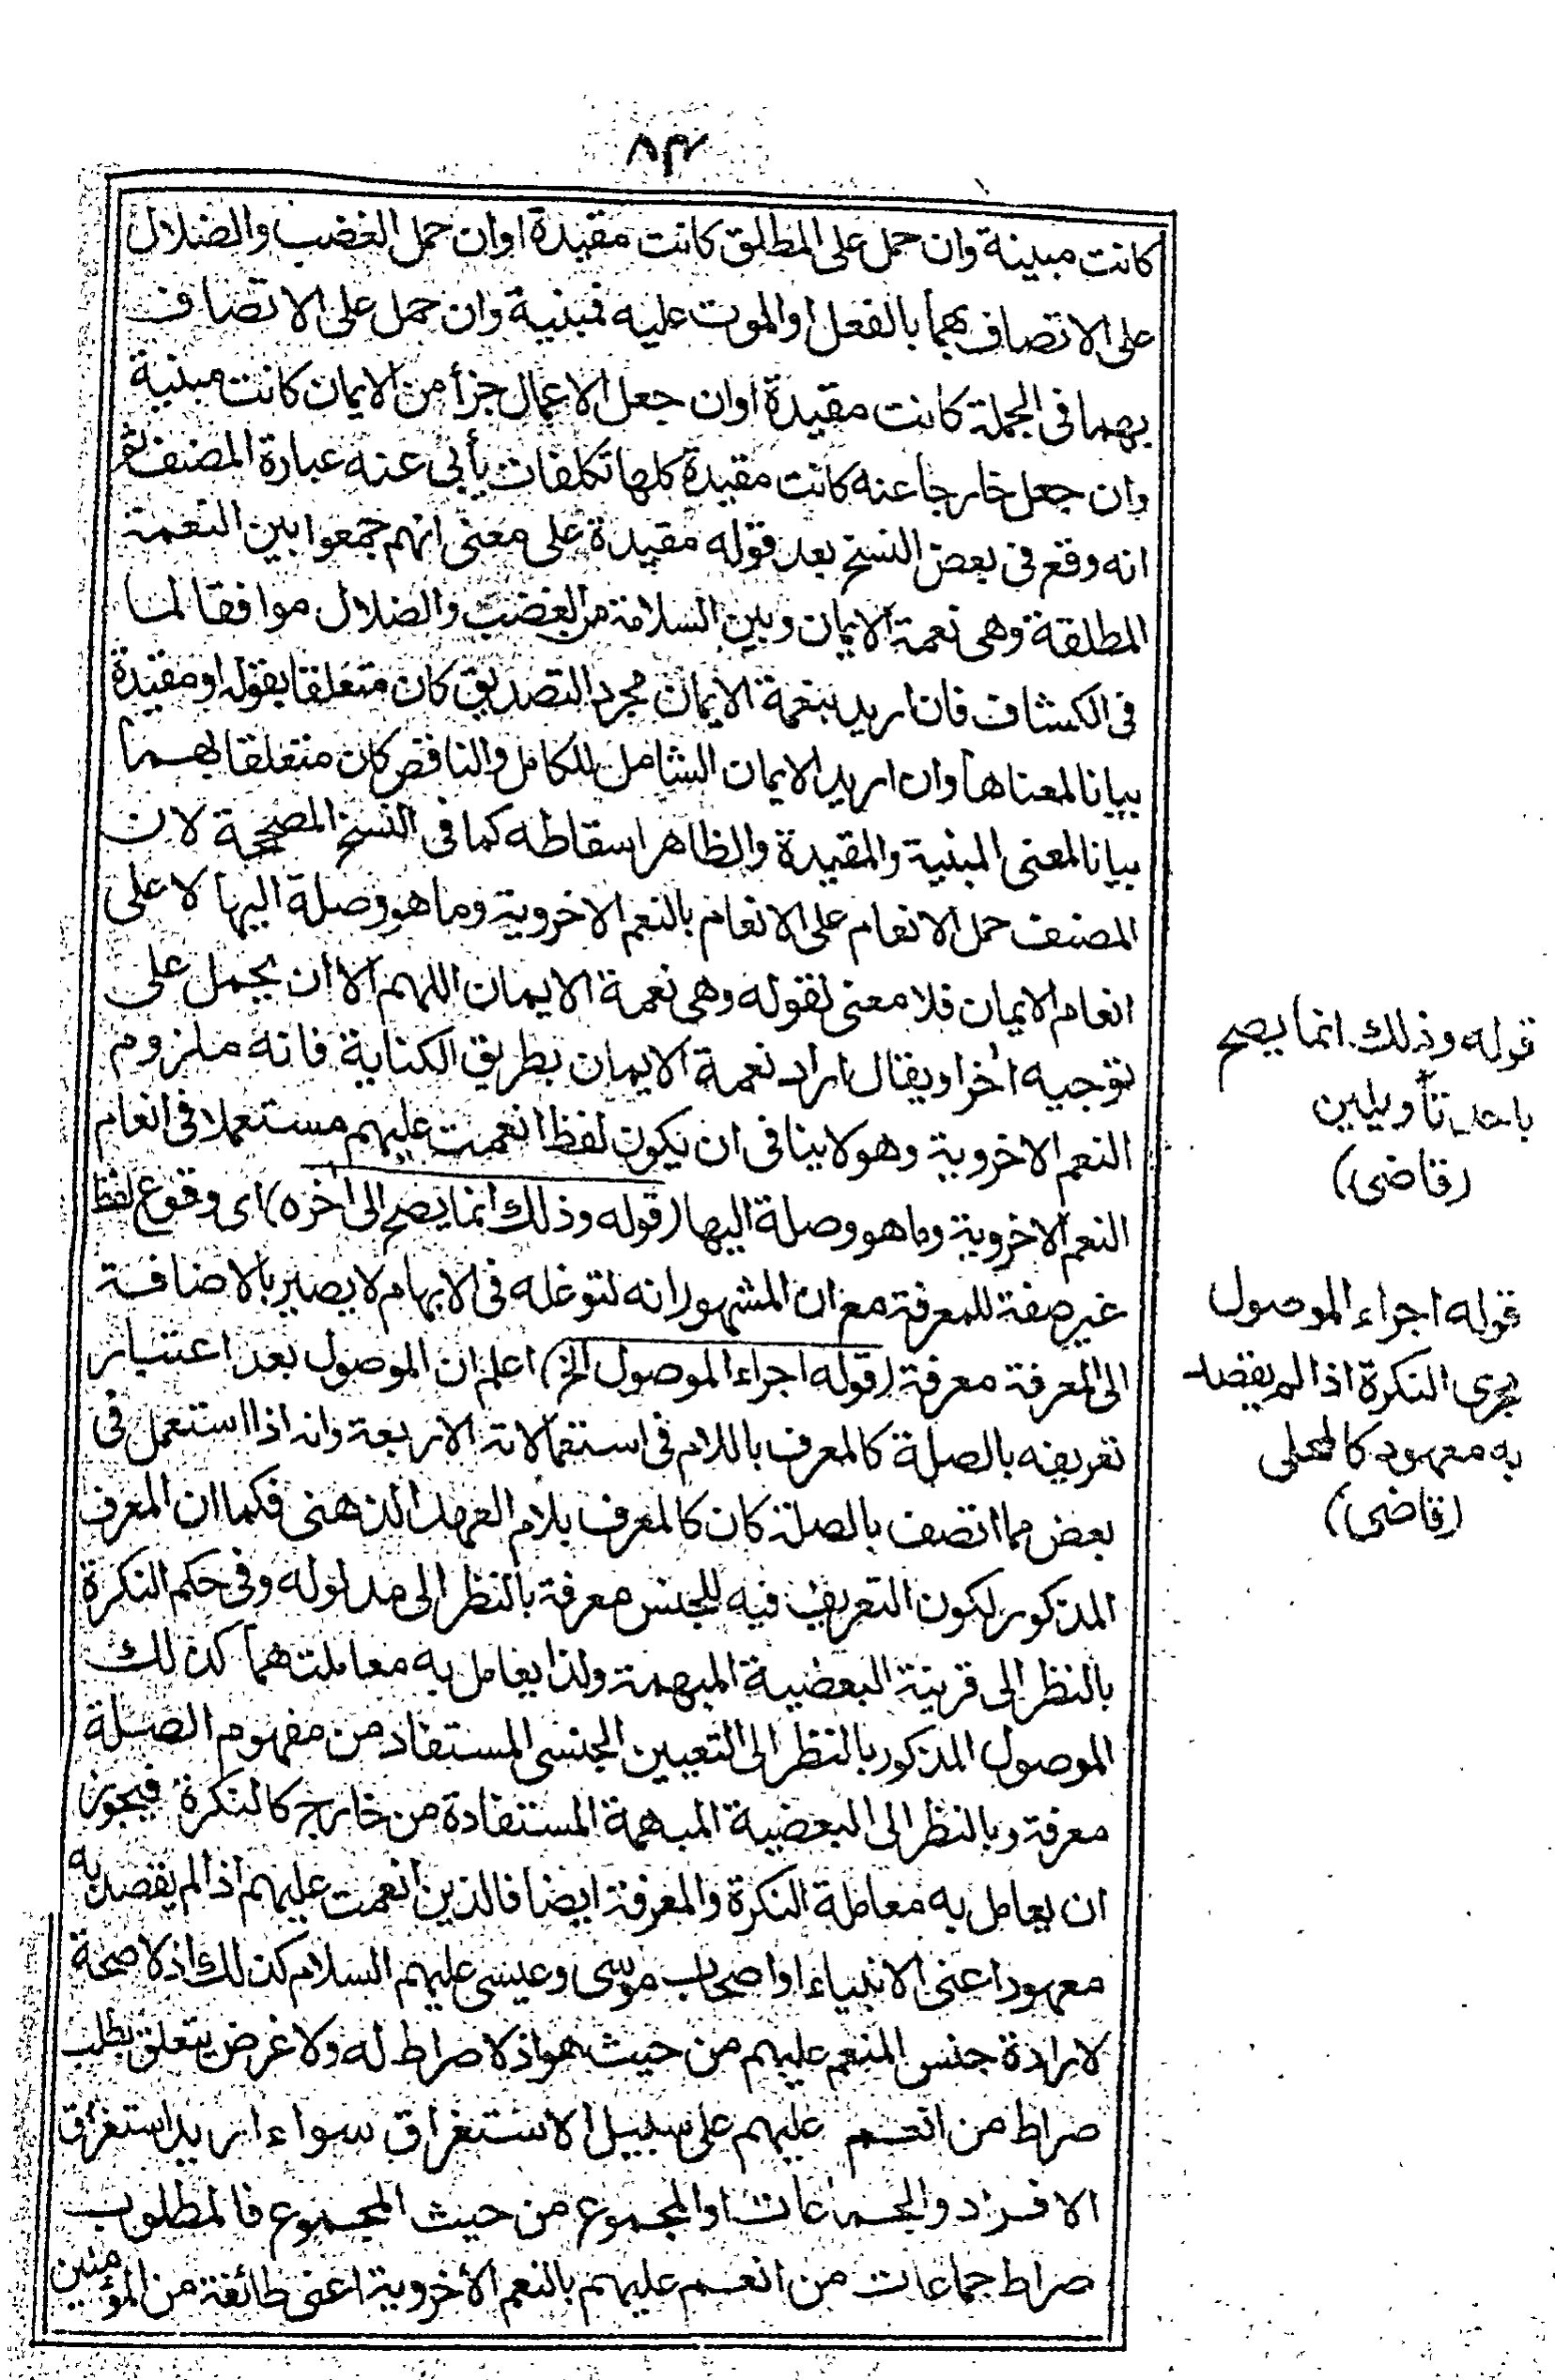 ٨٣
كانت مبينة وان حمل على المطلق كانت مقيدة اوان حمل الغضب والضلال
على الاتصاف بهما بالفعل او الموت عليه فمبنية وان حمل على الاتصاف
بهما فى الجملة كانت مقيدة اوان جعل الاعمال جزأ من الايمان كانت مبنية
وان جعل خارجا عنه كانت مقيدة كلها تكلفات يأبى عنه عبارة المصنف نعم
انه وقع فى بعض النسخ بعد قوله مقيدة على معنى انهم جمعوا بين النعمة
المطلقة وهى نعمة الايمان وبين السلامة من الغضب والضلال موافقا لما
فى الكشاف فان اريد بنعمة الايمان مجرد التصديق كان متعلقا بقوله او مقيدة
بيانا لمعناها وان اريد الايمان الشامل للكامل والناقص كان متعلقا بهما
بيانا لمعنى المبنية والمقيدة والظاهر اسقاطه كما فى النسخ المصححة لان
المصنف حمل الانعام على الانعام بالنعم الاخروية وما هو وصلة اليها لا على
انعام الايمان فلا معنى لقوله وهى نعمة الايمان اللهم الا ان يحمل على
توجيه اخر او يقال اراد نعمة الايمان بطريق الكناية فانه ملزوم
النعم الاخروية وهو لا ينافى ان يكون لفظ انعمت عليهم مستعملا فى انعام
النعم الاخروية وما هو وصلة اليها (قوله وذلك انما يصح الى اخره) اى وقوع لفظ
غير صفة للمعرفة مع ان المشهور انه لتوغله فى الابهام لا يصير بالاضافة
الى المعرفة معرفة (قوله اجراء الموصول الخ) اعلم ان الموصول بعد اعتبار
تعريفه بالصلة كالمعرف باللام فى استعمالاته الاربعة وانه اذا استعمل فى
بعض مما اتصف بالصلة كان كالمعرف بلام العهد الذهنى فكما ان المعرف
المذكور لكون التعريف فيه للجنس معرفة بالنظر الى مدلوله وفى حكم النكرة
بالنظر الى قرينة البعضية المبهمة ولذا يعامل به معاملتهما كذلك
الموصول المذكور بالنظر الى التعيين الجنسى المستفاد من مفهوم الصلة
معرفة وبالنظر الى البعضية المبهمة المستفادة من خارج كالنكرة فيجوز
ان يعامل به معاملة النكرة والمعرفة ايضا فالذين انعمت عليهم اذا لم يقصد به
معهود اعنى الانبياء او اصحاب موسى وعيسى عليهم السلام كذلك اذ لا صحة
لارادة جنس المنعم عليهم من حيث هو اذ لا صراط له ولا غرض يتعلق بطلب
صراط من انعم عليهم على سبيل الاستغراق سواء اريد استغراق
الافراد والجماعات او المجموع من حيث المجموع فالمطلوب
صراط جماعات من انعم عليهم بالنعم الأخروية اعنى طائفة من المؤمنين
قوله وذلك انما يصح
باحد تأويلين
(قاضى)
قوله اجراء الموصول
مجرى النكرة اذا لم يقصد
به معهود كالمحلى
(قاضى)